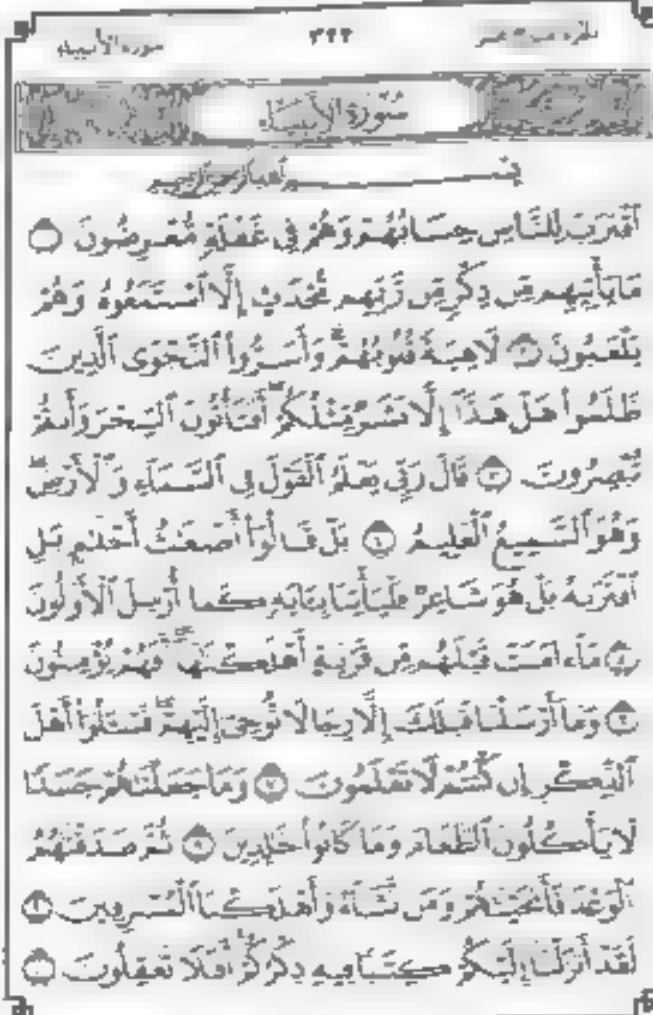 سورة الأنبياء ٣٢٢ الجزء السابع عشر
سُورَةُ الأَنْبِيَاءِ
بِسْمِ ٱللَّهِ ٱلرَّحْمَٰنِ ٱلرَّحِيمِ
ٱقْتَرَبَ لِلنَّاسِ حِسَابُهُمْ وَهُمْ فِي غَفْلَةٍ مُّعْرِضُونَ ١
مَا يَأْتِيهِم مِّن ذِكْرٍ مِّن رَّبِّهِم مُّحْدَثٍ إِلَّا ٱسْتَمَعُوهُ وَهُمْ
يَلْعَبُونَ ٢ لَاهِيَةً قُلُوبُهُمْ ۗ وَأَسَرُّوا۟ ٱلنَّجْوَى ٱلَّذِينَ
ظَلَمُوا۟ هَلْ هَٰذَآ إِلَّا بَشَرٌ مِّثْلُكُمْ ۖ أَفَتَأْتُونَ ٱلسِّحْرَ وَأَنتُمْ
تُبْصِرُونَ ٣ قَالَ رَبِّي يَعْلَمُ ٱلْقَوْلَ فِي ٱلسَّمَآءِ وَٱلْأَرْضِ ۖ
وَهُوَ ٱلسَّمِيعُ ٱلْعَلِيمُ ٤ بَلْ قَالُوٓا۟ أَضْغَٰثُ أَحْلَٰمٍۭ بَلِ
ٱفْتَرَىٰهُ بَلْ هُوَ شَاعِرٌ فَلْيَأْتِنَا بِـَٔايَةٍ كَمَآ أُرْسِلَ ٱلْأَوَّلُونَ
٥ مَآ ءَامَنَتْ قَبْلَهُم مِّن قَرْيَةٍ أَهْلَكْنَٰهَآ ۖ أَفَهُمْ يُؤْمِنُونَ
٦ وَمَآ أَرْسَلْنَا قَبْلَكَ إِلَّا رِجَالًا نُّوحِىٓ إِلَيْهِمْ ۖ فَسْـَٔلُوٓا۟ أَهْلَ
ٱلذِّكْرِ إِن كُنتُمْ لَا تَعْلَمُونَ ٧ وَمَا جَعَلْنَٰهُمْ جَسَدًا
لَّا يَأْكُلُونَ ٱلطَّعَامَ وَمَا كَانُوا۟ خَٰلِدِينَ ٨ ثُمَّ صَدَقْنَٰهُمُ
ٱلْوَعْدَ فَأَنجَيْنَٰهُمْ وَمَن نَّشَآءُ وَأَهْلَكْنَا ٱلْمُسْرِفِينَ ٩
لَقَدْ أَنزَلْنَآ إِلَيْكُمْ كِتَٰبًا فِيهِ ذِكْرُكُمْ ۖ أَفَلَا تَعْقِلُونَ ١٠